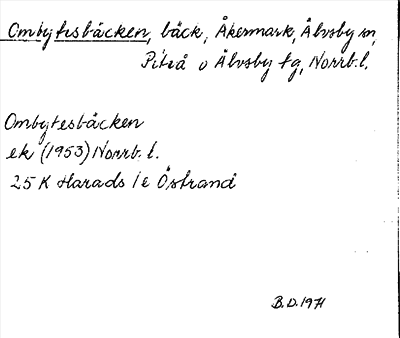 Ombytesbäcken, bäck, Åkermark, Älvsby sn,
Piteå o Älvsby tg, Norrb. l.
Ombytesbäcken
ek (1953) Norrb. l.
25 K Harads 1 e Östrand
B.D. 1971